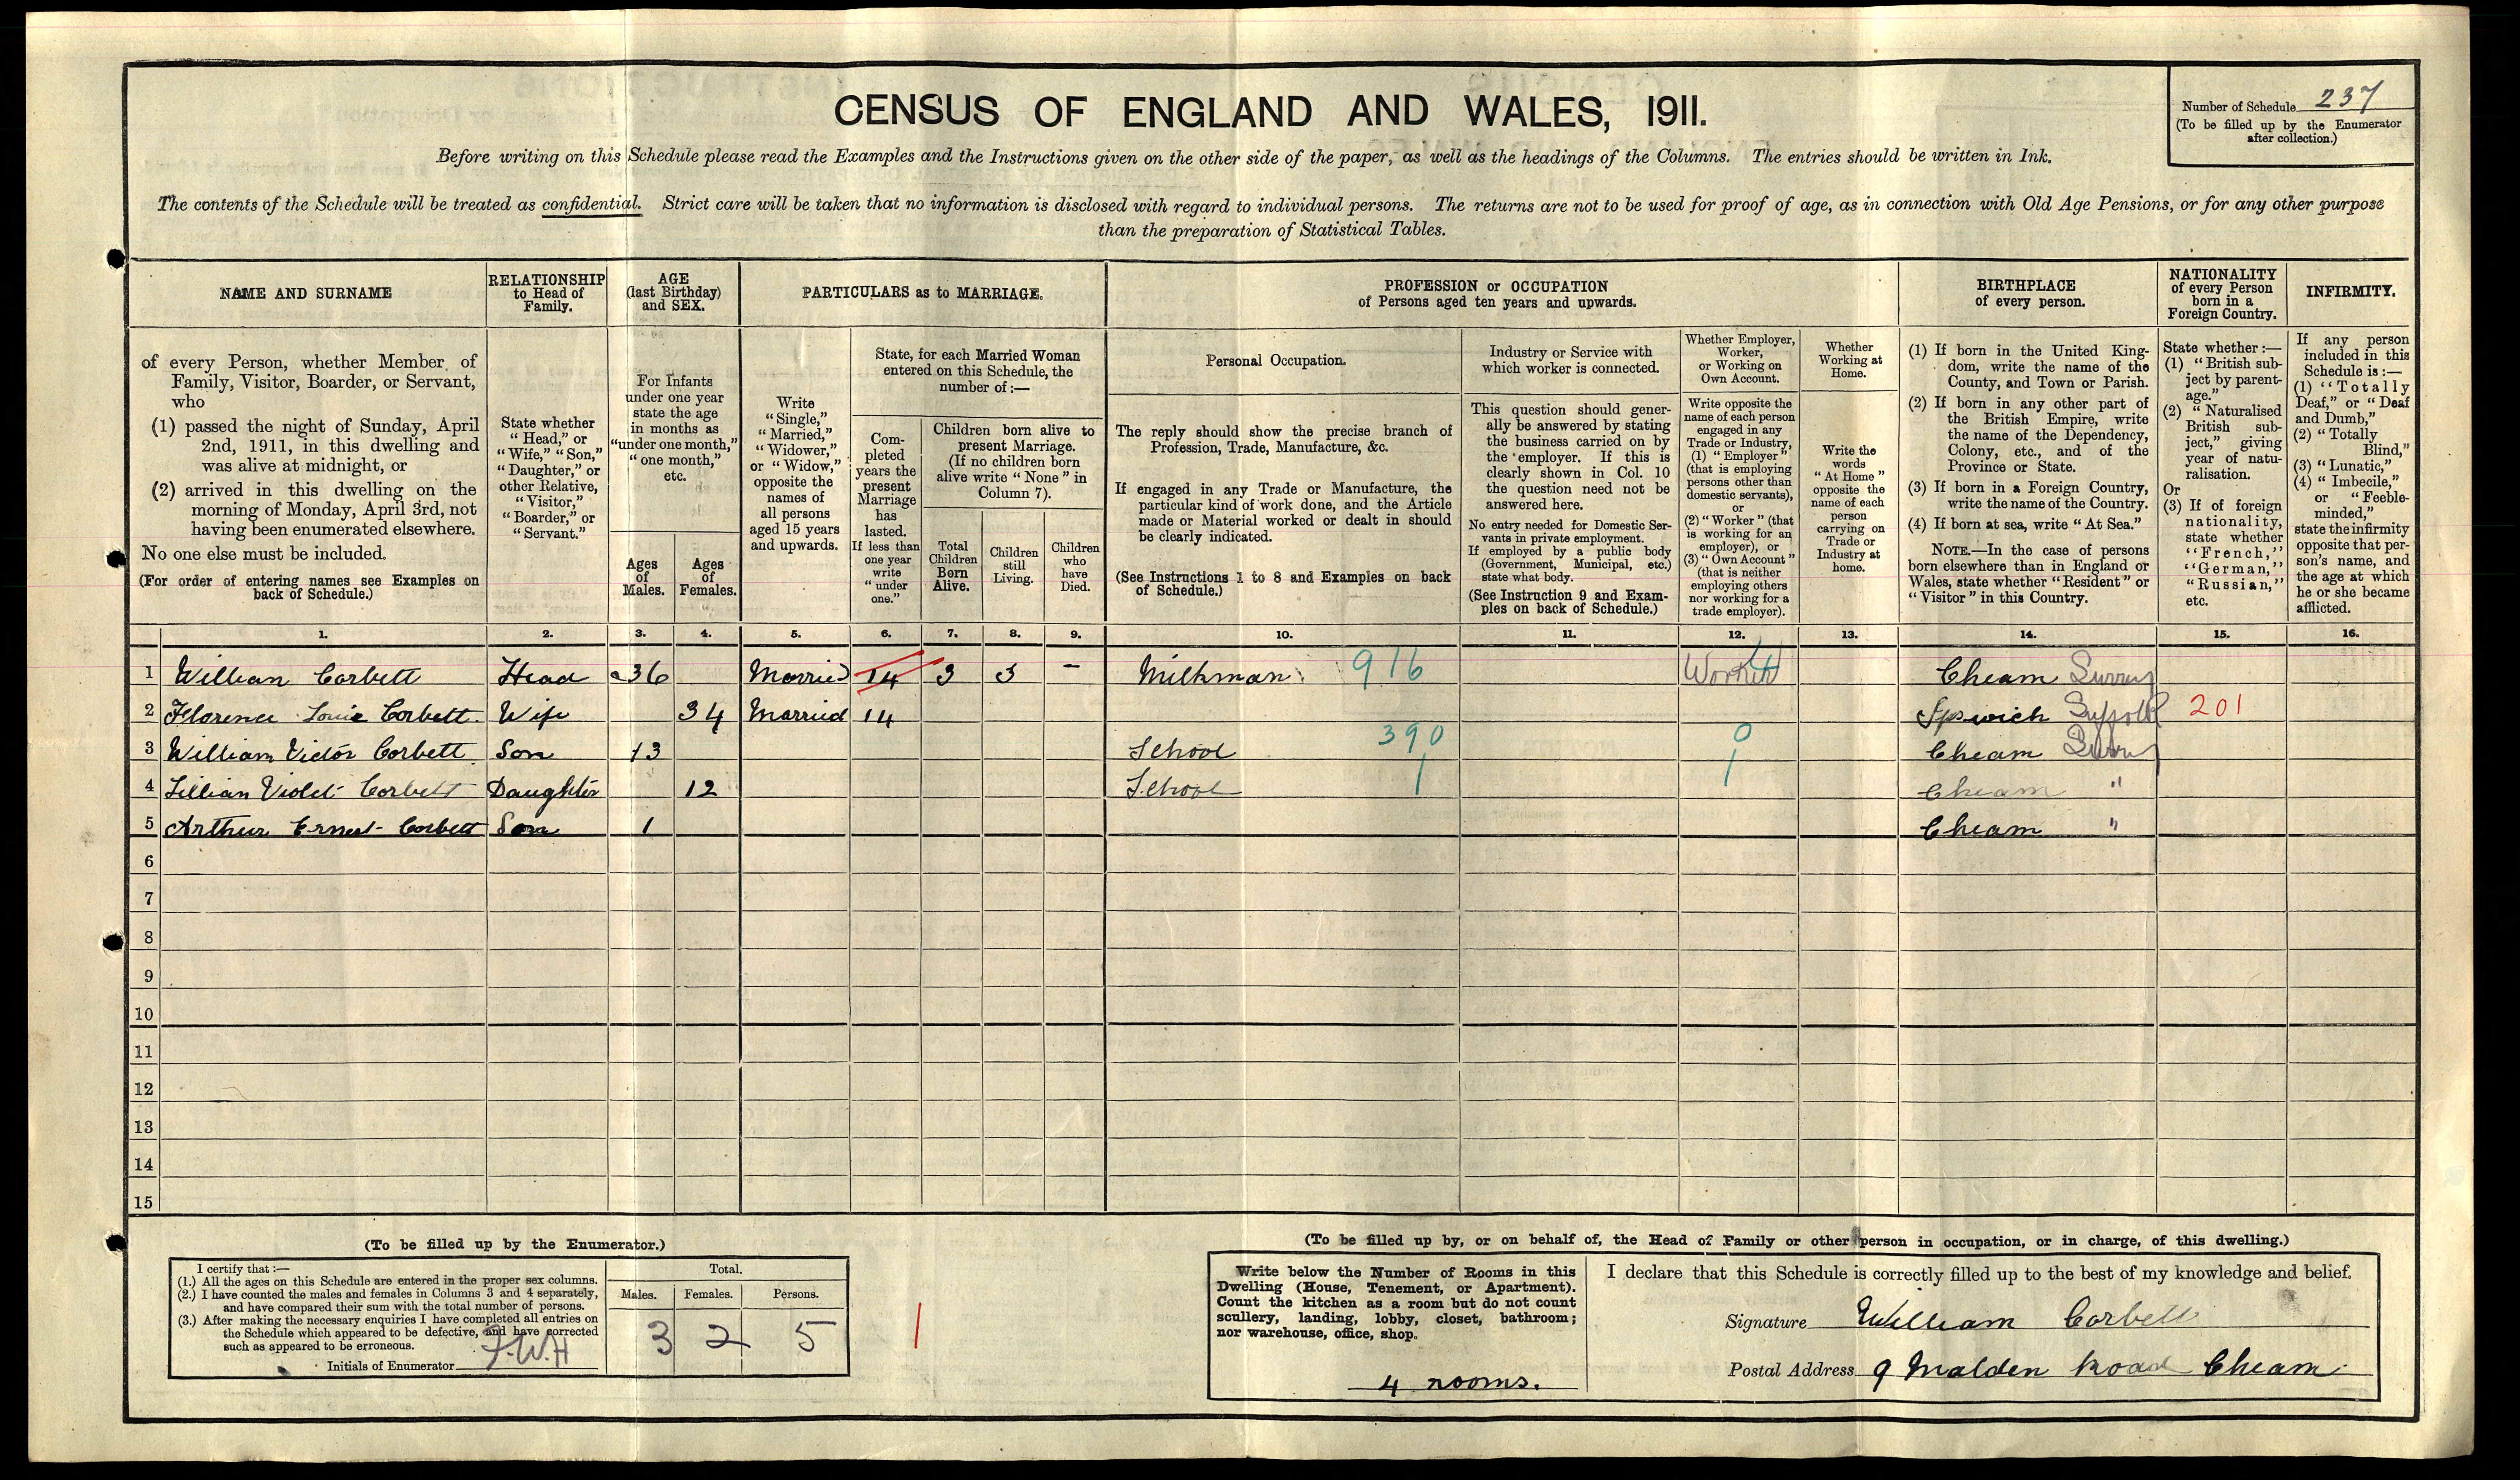 CENSUS OF ENGLAND AND WALES, 1911.
Number of Schedule 237
(To be filled up by the Enumerator
after collection.)
Before writing on this Schedule please read the Examples and the Instructions given on the other side of the paper, as well as the headings of the Columns. The entries should be written in Ink.
The contents of the Schedule will be treated as confidential. Strict care will be taken that no information is disclosed with regard to individual persons. The returns are not to be used for proof of age, as in connection with Old Age Pensions, or for any other purpose
than the preparation of Statistical Tables.
NAME AND SURNAME
RELATIONSHIP
to Head of
Family.
AGE
(last Birthday)
and SEX.
PARTICULARS as to MARRIAGE.
PROFESSION or OCCUPATION
of Persons aged ten years and upwards.
BIRTHPLACE
of every person.
NATIONALITY
of every Person
born in a
Foreign Country.
INFIRMITY.
of every Person, whether Member of
Family, Visitor, Boarder, or Servant,
who
(1) passed the night of Sunday, April
2nd, 1911, in this dwelling and
was alive at midnight, or
(2) arrived in this dwelling on the
morning of Monday, April 3rd, not
having been enumerated elsewhere.
No one else must be included.
(For order of entering names see Examples on
back of Schedule.)
State whether
"Head," or
"Wife," "Son,"
"Daughter," or
other Relative,
"Visitor,"
"Boarder," or
"Servant."
For Infants
under one year
state the age
in months as
"under one month,"
"one month,"
etc.
Ages
of
Males.
Ages
of
Females.
Write
"Single,"
"Married,"
"Widower,"
or "Widow,"
opposite the
names of
all persons
aged 15 years
and upwards.
State, for each Married Woman
entered on this Schedule, the
number of:—
Com-
pleted
years the
present
Marriage
has
lasted.
If less than
one year
write
"under
one."
Children born alive to
present Marriage.
(If no children born
alive write "None" in
Column 7).
Total
Children
Born
Alive.
Children
still
Living.
Children
who
have
Died.
Personal Occupation.
The reply should show the precise branch of
Profession, Trade, Manufacture, &c.
If engaged in any Trade or Manufacture, the
particular kind of work done, and the Article
made or Material worked or dealt in should
be clearly indicated.
(See Instructions 1 to 8 and Examples on back
of Schedule.)
Industry or Service with
which worker is connected.
This question should gener-
ally be answered by stating
the business carried on by
the employer. If this is
clearly shown in Col. 10
the question need not be
answered here.
No entry needed for Domestic Ser-
vants in private employment.
If employed by a public body
(Government, Municipal, etc.)
state what body.
(See Instruction 9 and Exam-
ples on back of Schedule.)
Whether Employer,
Worker,
or Working on
Own Account.
Write opposite the
name of each person
engaged in any
Trade or Industry,
(1) "Employer"
(that is employing
persons other than
domestic servants),
or
(2) "Worker" (that
is working for an
employer), or
(3) "Own Account"
(that is neither
employing others
nor working for a
trade employer).
Whether
Working at
Home.
Write the
words
"At Home"
opposite the
name of each
person
carrying on
Trade or
Industry at
home.
(1) If born in the United King-
dom, write the name of the
County, and Town or Parish.
(2) If born in any other part of
the British Empire, write
the name of the Dependency,
Colony, etc., and of the
Province or State.
(3) If born in a Foreign Country,
write the name of the Country.
(4) If born at sea, write "At Sea."
NOTE.—In the case of persons
born elsewhere than in England or
Wales, state whether "Resident" or
"Visitor" in this Country.
State whether:—
(1) "British sub-
ject by parent-
age."
(2) "Naturalised
British sub-
ject," giving
year of natu-
ralisation.
Or
(3) If of foreign
nationality,
state whether
"French,"
"German,"
"Russian,"
etc.
If any person
included in this
Schedule is:—
(1) "Totally
Deaf," or "Deaf
and Dumb,"
(2) "Totally
Blind,"
(3) "Lunatic,"
(4) "Imbecile,"
or "Feeble-
minded,"
state the infirmity
opposite that per-
son's name, and
the age at which
he or she became
afflicted.
1. 2. 3. 4. 5. 6. 7. 8. 9. 10. 11. 12. 13. 14. 15. 16.
1 William Corbett Head 36 Married 14 3 3 – Milkman 916 Worker Cheam Surrey
2 Florence Louie Corbett Wife 34 Married 14 Ipswich Suffolk 201
3 William Victor Corbett Son 13 School 390 0 Cheam Surrey
4 Lillian Violet Corbett Daughter 12 School Cheam "
5 Arthur Ernest Corbett Son 1 Cheam "
6
7
8
9
10
11
12
13
14
15
(To be filled up by the Enumerator.)
I certify that:—
(1.) All the ages on this Schedule are entered in the proper sex columns.
(2.) I have counted the males and females in Columns 3 and 4 separately,
and have compared their sum with the total number of persons.
(3.) After making the necessary enquiries I have completed all entries on
the Schedule which appeared to be defective, and have corrected
such as appeared to be erroneous.
Initials of Enumerator F.W.H
Total.
Males. Females. Persons.
3 2 5
1
(To be filled up by, or on behalf of, the Head of Family or other person in occupation, or in charge, of this dwelling.)
Write below the Number of Rooms in this
Dwelling (House, Tenement, or Apartment).
Count the kitchen as a room but do not count
scullery, landing, lobby, closet, bathroom;
nor warehouse, office, shop.
4 rooms.
I declare that this Schedule is correctly filled up to the best of my knowledge and belief.
Signature William Corbett
Postal Address 9 Malden Road Cheam